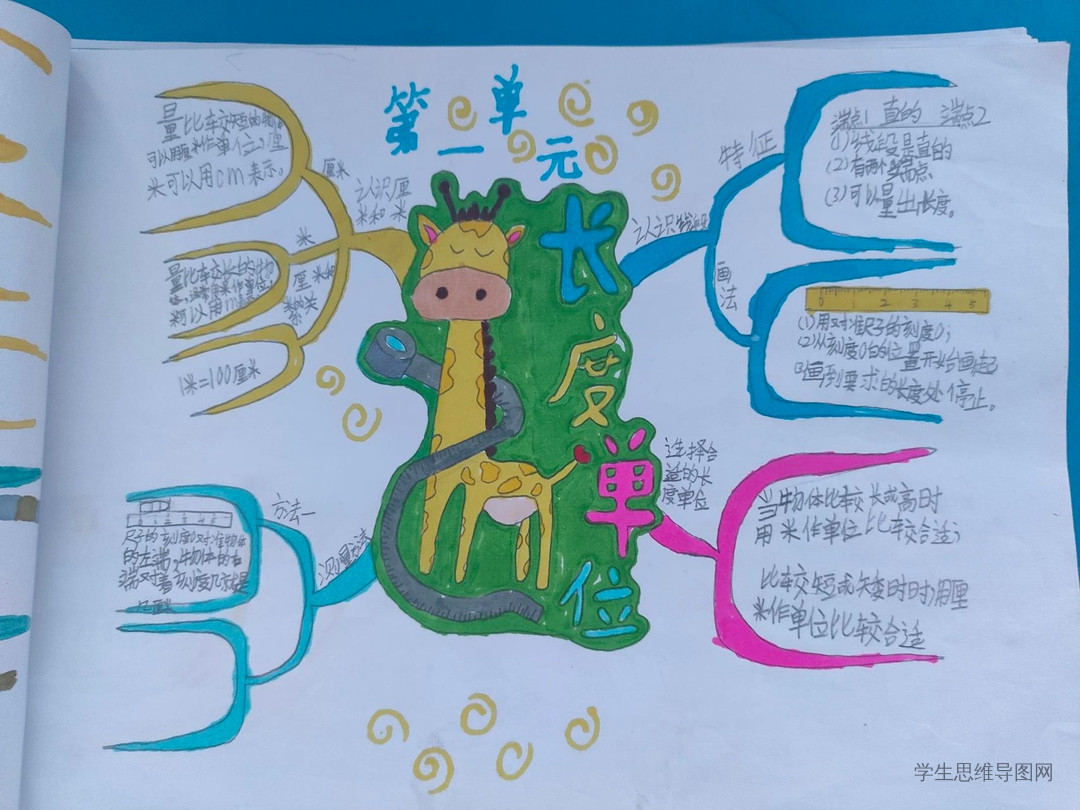 第一单元
长度单位
认识厘
米和米
厘米
量比较短的物品
可以用厘米作单位,厘
米可以用cm表示。
米
量比较长的物
可以用m表示
厘米和
米的关系
1米=100厘米
测量方法
方法一
0 1 2 3 4 5
尺子的刻度0对准物体
的左端,物体的右
端对着刻度几就是
几厘米
认识线段
特征
端点1 直的 端点2
(1)线段是直的
(2)有两个端点
(3)可以量出长度。
画法
0 1 2 3 4 5
(1)用对准尺子的刻度0;
(2)从刻度0的位置开始画起
(3)画到要求的长度处停止。
选择合
适的长
度单位
当物体比较长或高时
用米作单位比较合适;
比较短或矮时时,用厘
米作单位比较合适
学生思维导图网